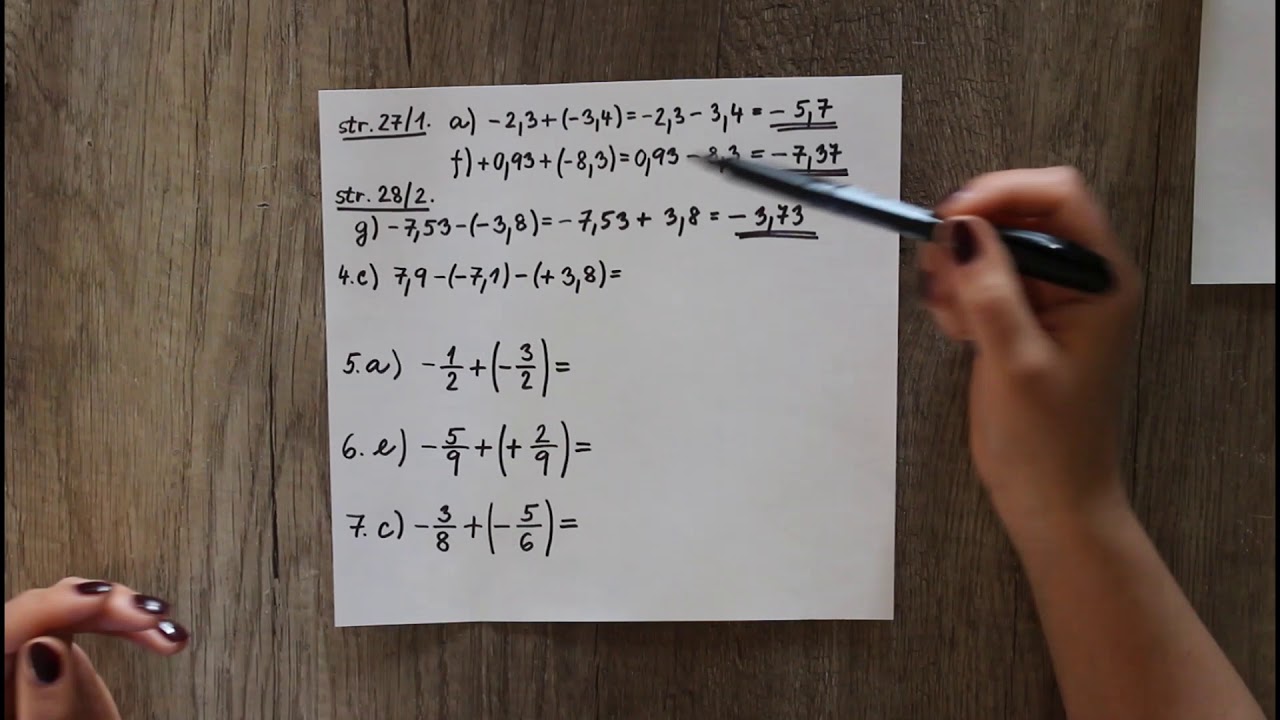 str. 27/1. a) -2,3+(-3,4)=-2,3-3,4=-5,7
f)+0,93+(-8,3)=0,93-8,3=-7,37
str. 28/2.
g)-7,53-(-3,8)=-7,53+3,8=-3,73
4.c) 7,9-(-7,1)-(+3,8)=
5.a) -1/2+(-3/2)=
6.e) -5/9+(+2/9)=
7.c) -3/8+(-5/6)=